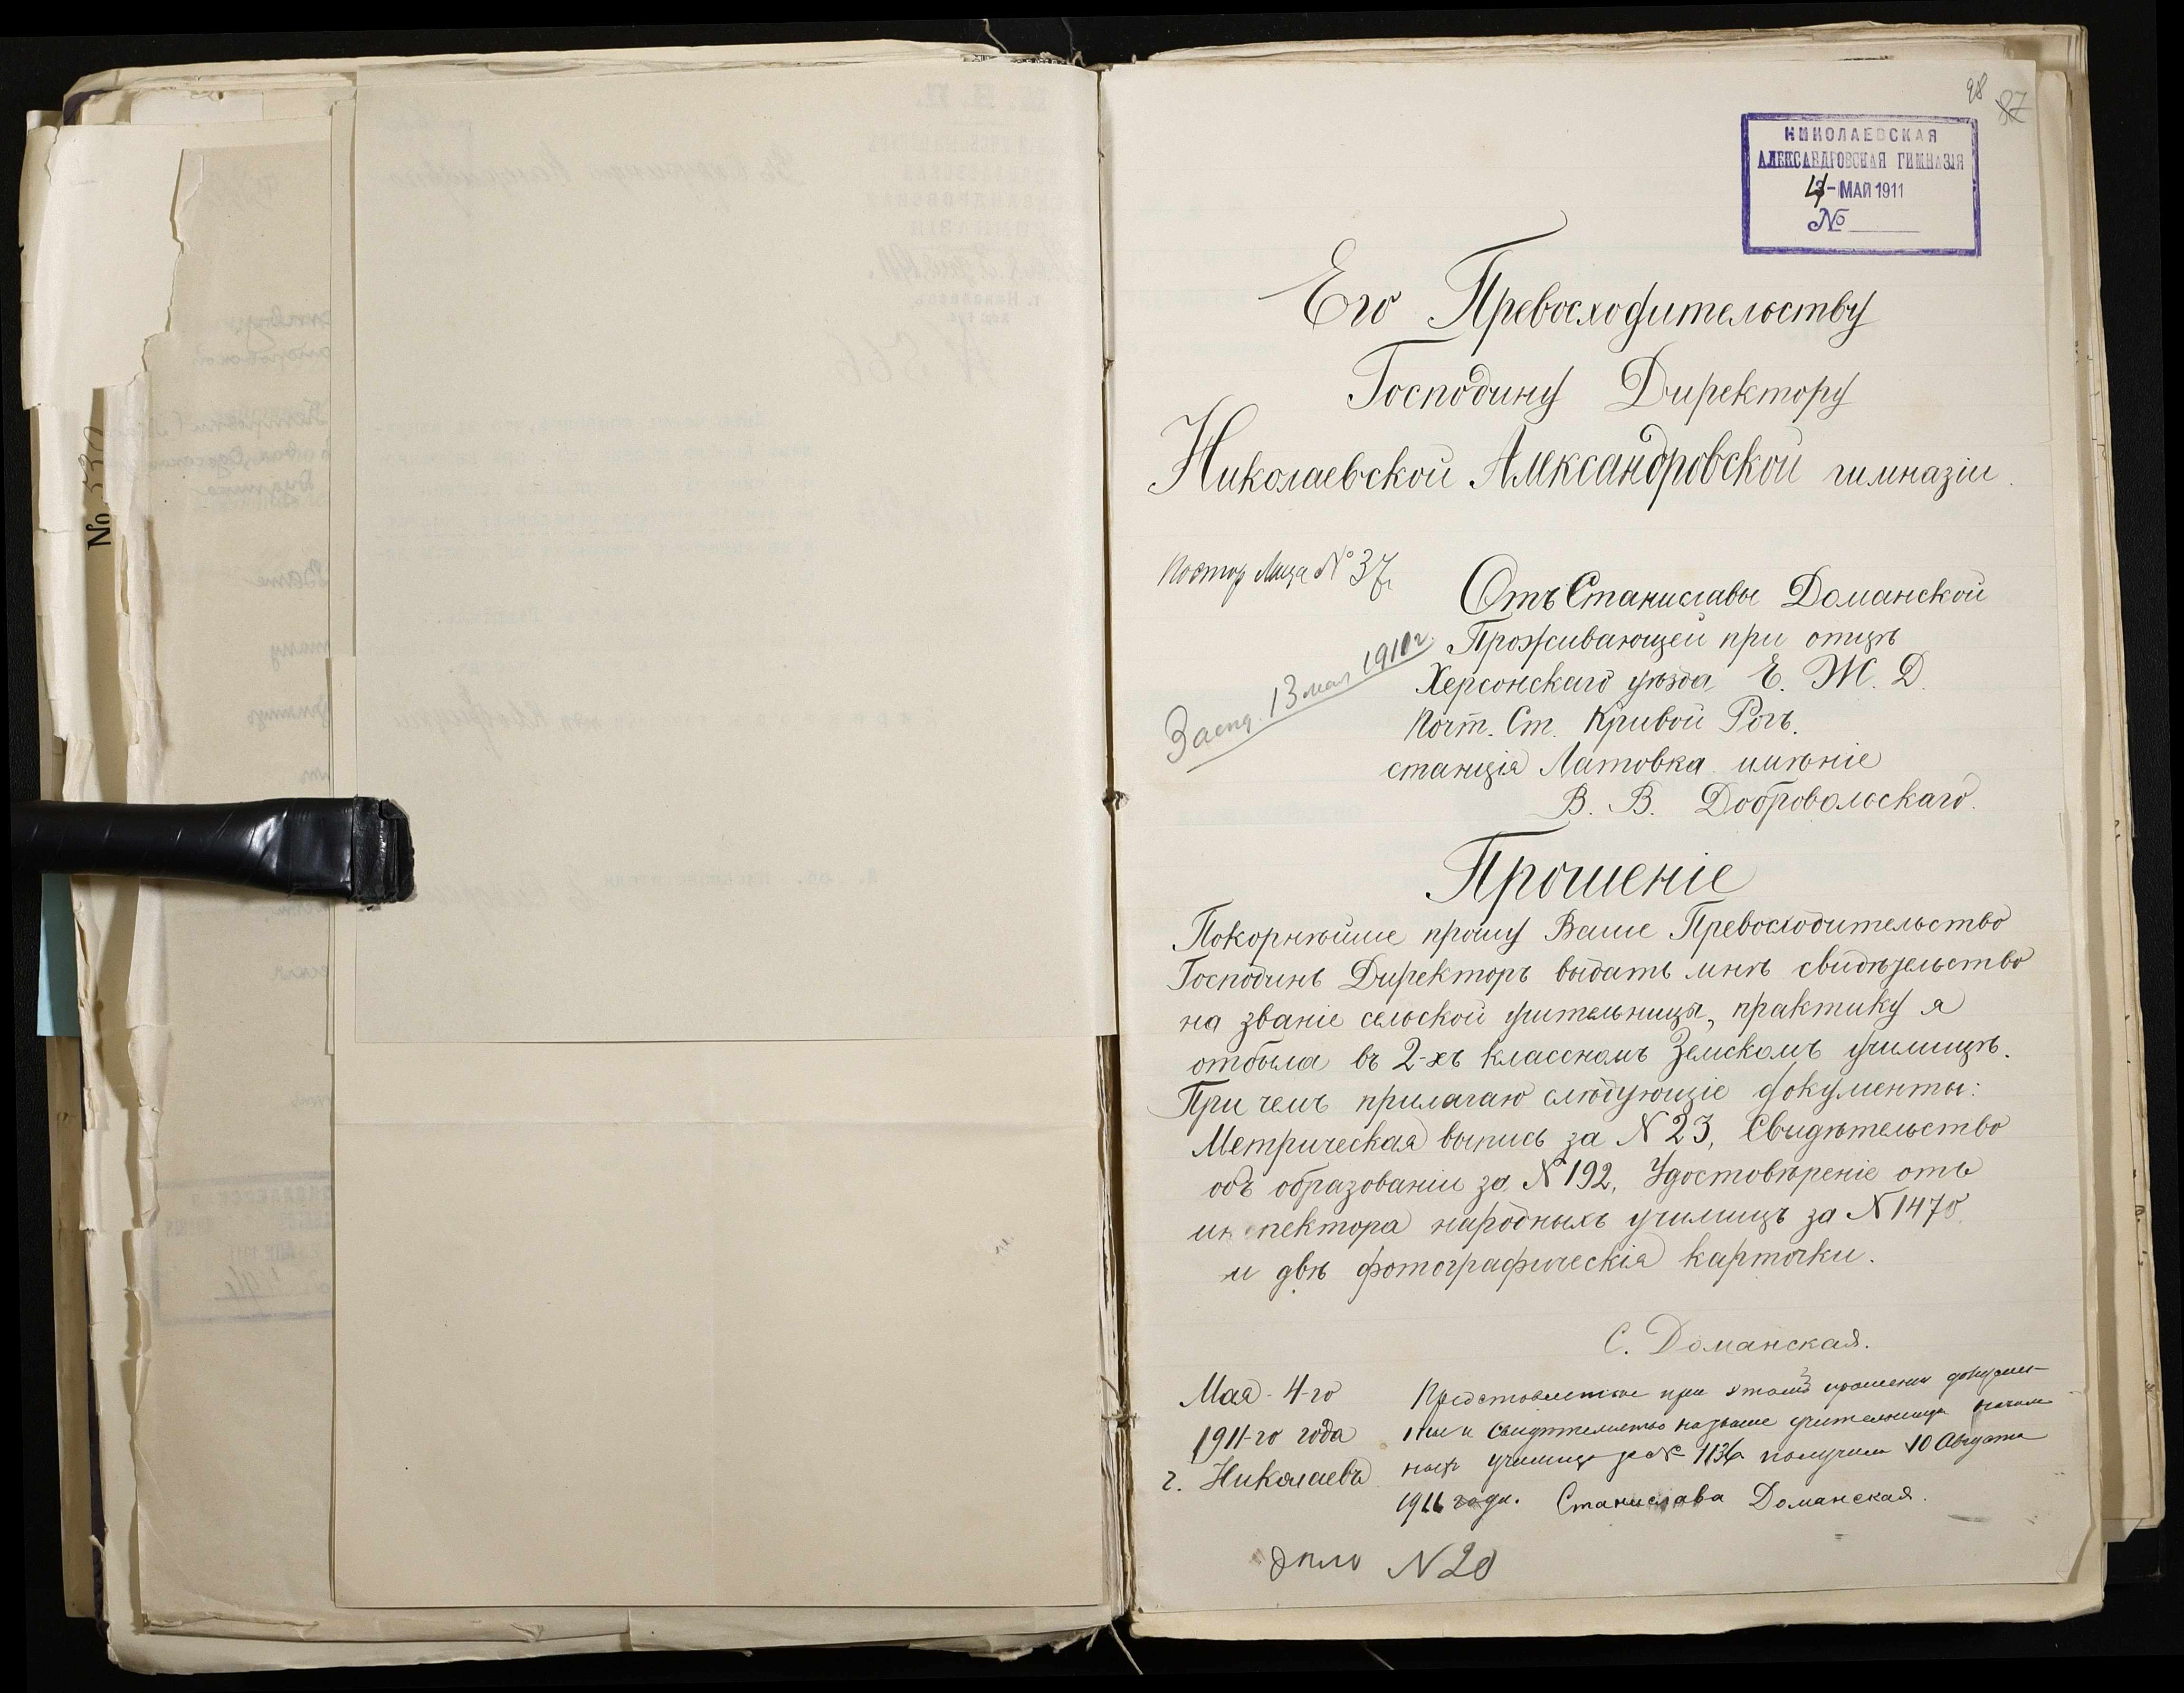 98
87
НИКОЛАЕВСКАЯ
АЛЕКСАНДРОВСКАЯ ГИМНАЗІЯ
4-МАЙ 1911
№
Его Превосходительству
Господину Директору
Николаевской Александровской гимназіи.
№ 37
Отъ Станиславы Доманской
Проживающей при отцѣ
Засѣд. 13 мая 1911 г.
Херсонскаго уѣзда Е. Ж. Д.
Почт. Ст. Кривой Рогъ.
станція Латовка имѣніе
В. В. Добровольскаго.
Прошеніе
Покорнѣйше прошу Ваше Превосходительство
Господинъ Директоръ выдать мнѣ свидѣтельство
на званіе сельской учительницы, практику я
отбыла въ 2-хъ классномъ Земскомъ училищѣ.
При чемъ прилагаю слѣдующіе документы:
Метрическая выпись за N 23, Свидѣтельство
объ образованіи за N 192, Удостовѣреніе отъ
инспектора народныхъ училищъ за N 1470
и двѣ фотографическія карточки.
С. Доманская.
Мая 4-го
1911-го года
г. Николаевъ
при прошеніи докумен-
и свидѣтельство на званіе учительницы началь
ныхъ училищъ за № 1136 получила 10 Августа
1911 года. Станислава Доманская.
дѣло N 20
No 530